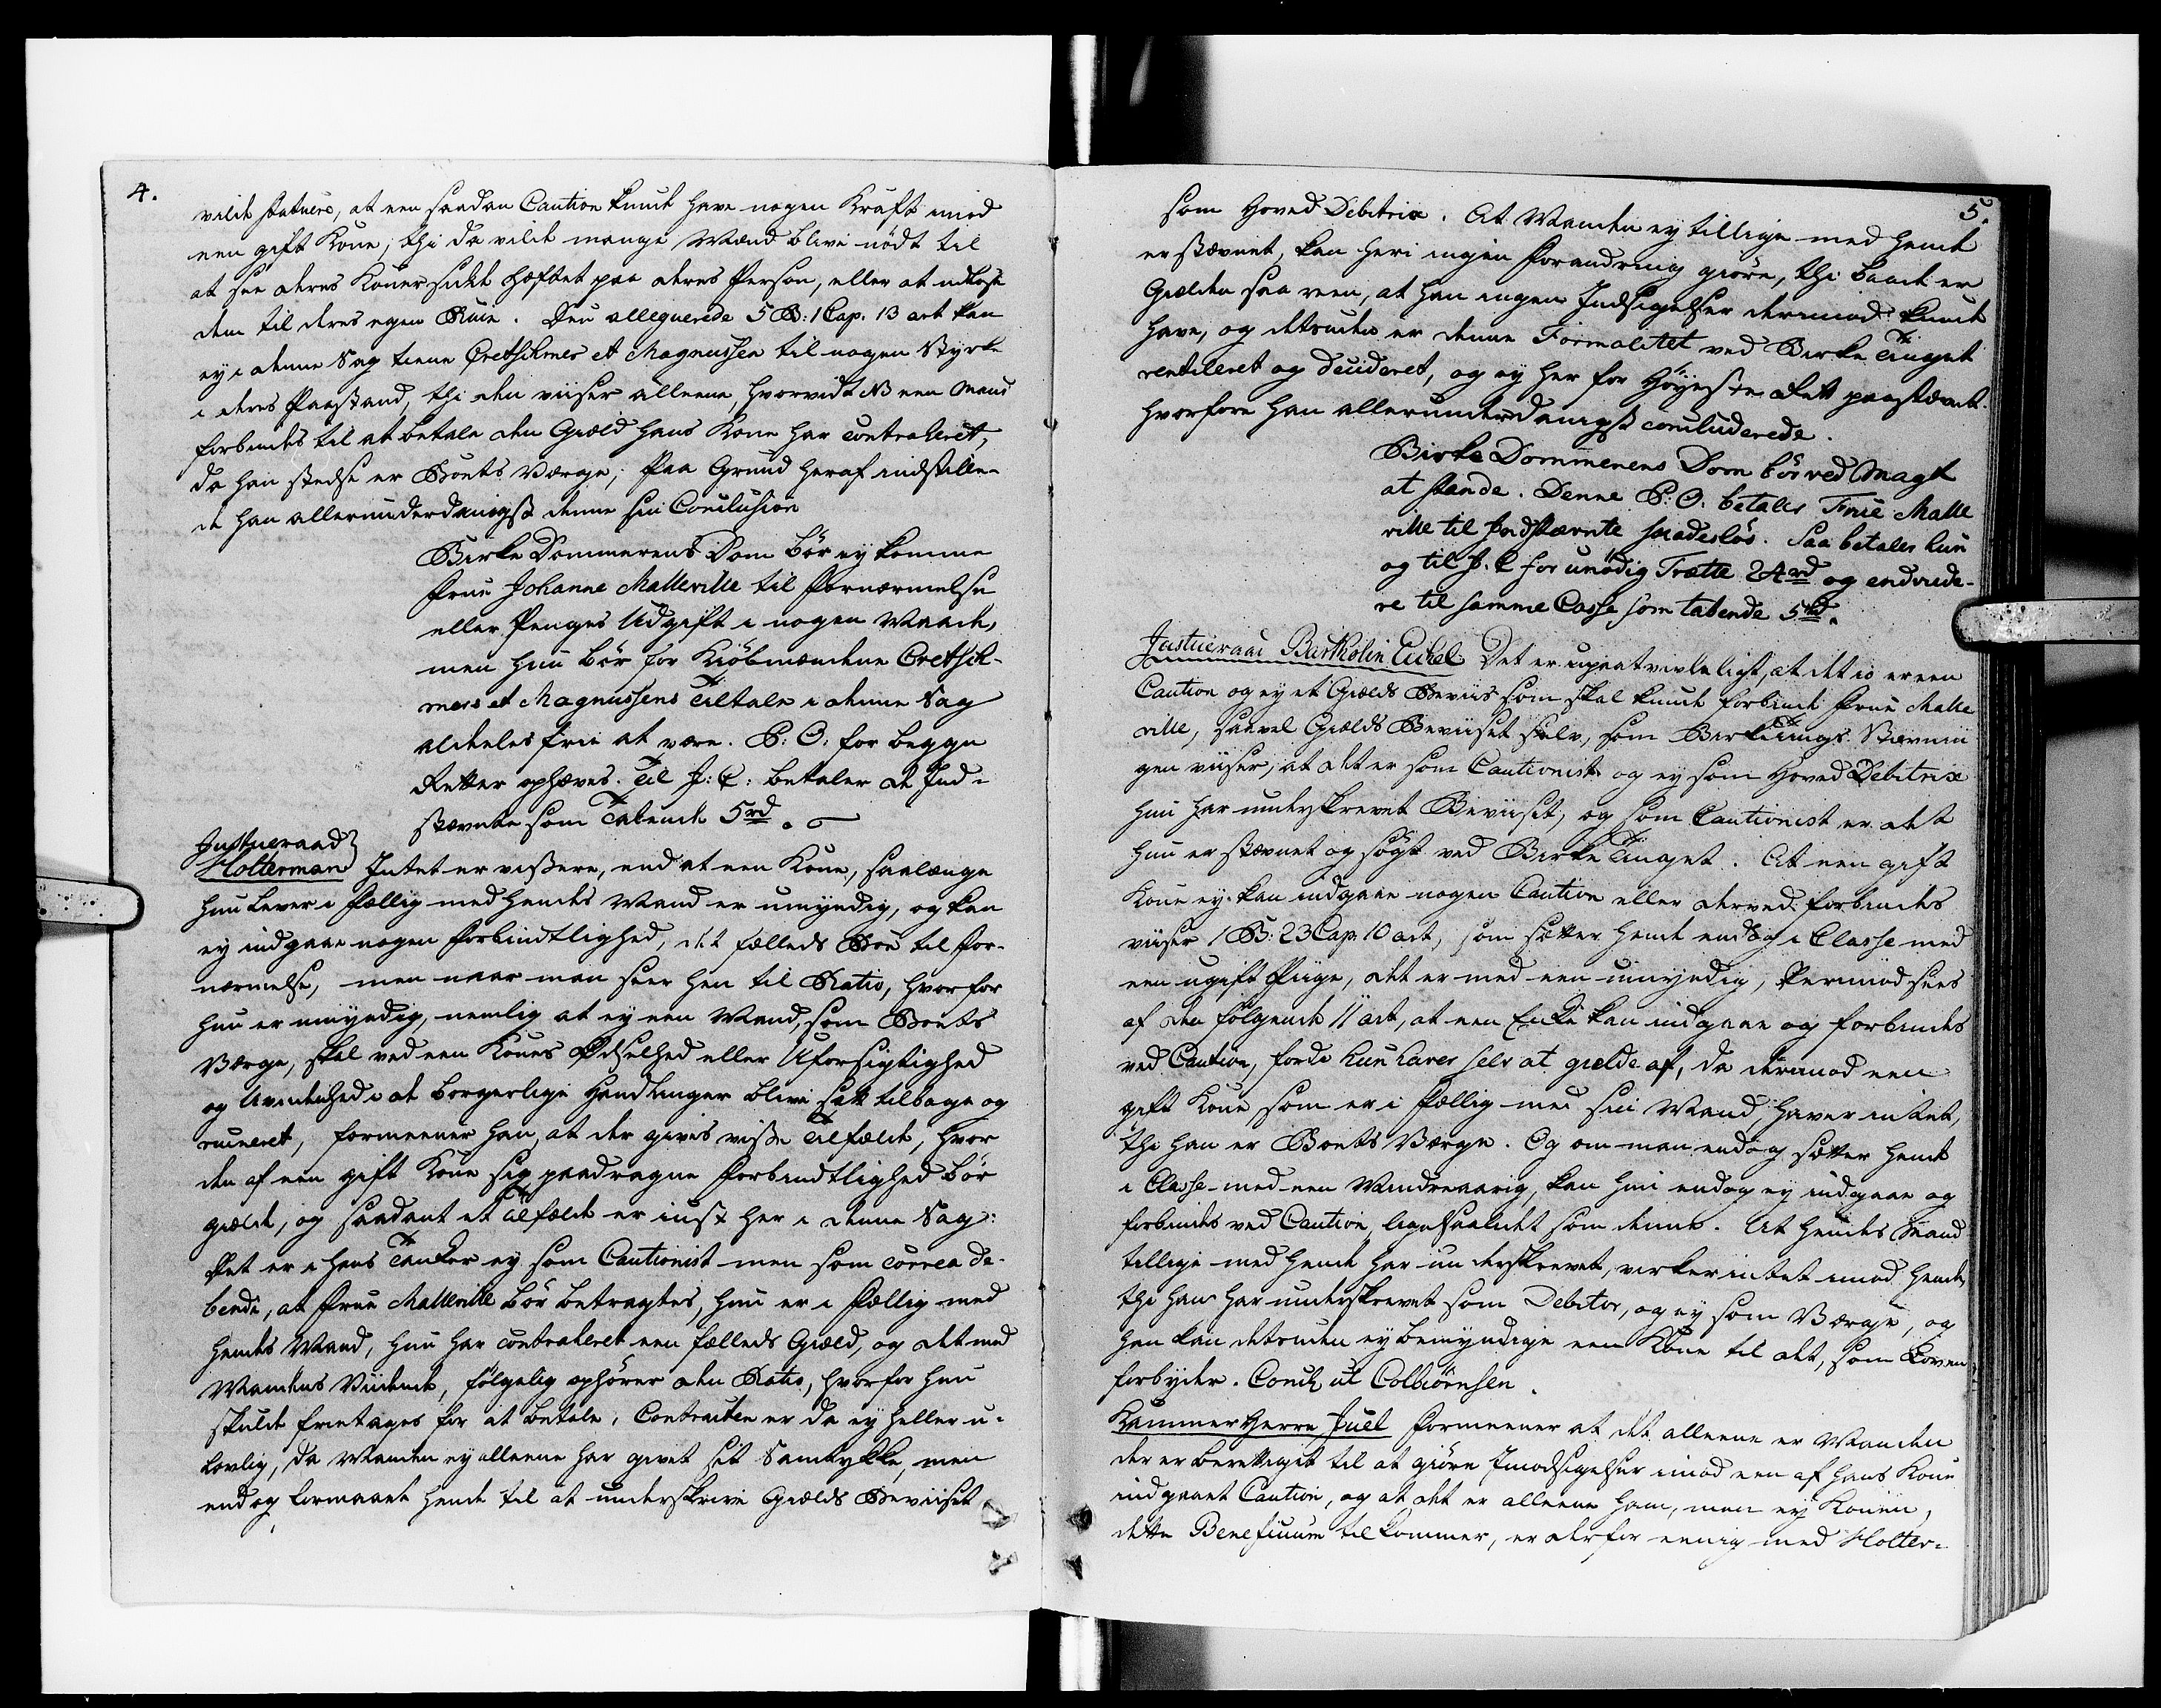 4.
vilde statuere, at een saadan Caution kunde have nogen Kraft imod
een gift Kone; thi da vilde mange Mænd blive nødt til
at see deres Koner sidde hæftet paa deres Person, eller at udløse
dem til deres egen Ruin. Den alleguerede 5 B: 1 Cap. 13 art kan
ey i denne Sag tiene Grethikmes et Magnussen til nogen Styrke
i deres Paastand, thi den viiser alleene, hvorvidt NB een Mand
forbindes til at betale den Gield hans Kone har contraheret,
da han stedse er Boets Værge; Paa Grund heraf indstille-
de han allerunderdanigst denne sin Conclusion
Birke Dommerens Dom bør ey komme
Frue Johanne Malleville til Fornærmelse
eller Penges Udgift i nogen Maade,
men hun bør for Kiøbmændene Cretsik-
mers et Magnussens Tiltale i denne Sag
aldeles frie at være. P: O. for begge
Retter ophæves. Til J: C: betaler de Ind-
stævnte som Tabende 5 rd.
Justiceraad
Holterman Intet er vissere, end at een Kone, saalænge
hun lever i Fællig med hendes Mand er umyndig, og kan
ey indgaae nogen Forbindtlighed, det fælleds Boe til For-
nærmelse, men naar man seer hen til Ratio, hvorfor
hun er umyndig, nemlig at ey een Mand, som Boets
Værge, skal ved een Kones Ødselhed eller Uforsigtighed
og Uvidenhed i de borgerlige Handlinger blive sat tilbage og
ruineret, formeener han, at der gives visse Tilfælde, hvor
den af een gift Kone sig paadragne Forbindtlighed bør
gielde, og saadant et Tilfælde er iust her i denne Sag:
Det er i hans Tanker ey som Cautionist men som correa de-
bendi, at Frue Malleville bør betragtes, hun er i Fællig med
hendes Mand, hun har contraheret een fælleds Gield, og det med
Mandens Vidende, følgelig ophører den Ratio, hvorfor hun
skulde fritages for at betale, Contracten er da ey heller u-
lovlig, da Manden ey alleene har givet sit Samtykke, men
endog formaaet hende til at underskrive Gields Beviiset
5.
som Hoved Debitrix. At Manden ey tillige med hende
er stævnet, kan heri ingen Forandring giøre, thi baade er
Gielden saa reen, at han ingen Indsigelser derimod kunde
have, og desuden er denne Formalitet ved Birke Tinget
ventileret og decideret, og ey her for Høyeste Rett paastævnt.
hvorfore han allerunderdanigst concluderede.
Birke Dommerens Dom bør ved Magt
at stande. Denne P: O. betaler Frue Malle
ville til Indstævnte skadesløs. Saa betaler hun
og til J. C for unødig Trætte 24 rd og endvide-
re til samme Casse som tabende 5 rd.
Justiceraad Bartholin Eichel Det er upaatvivleligt, at det io er een
Caution og ey et Gields Beviis som skal kunde forbinde Frue Malle
ville, saavel Gields Beviiset selv, som Birketings Stævnin
gen viiser, at det er som Cautionist og ey som Hoved Debitrix
hun har underskrevet Beviiset, og som Cautionist er det
hun er stævnet og søgt ved Birke Tinget. At een gift
Kone ey kan indgaae nogen Caution eller derved forbindes
viiser 1 B: 23 Cap. 10 art, som sætter hende endog i Classe med
een ugift Piige, det er med een umyndig, Derimod sees
af den følgende 11 art, at een Encke kan indgaae og forbindes
ved Caution, fordi hun haver selv at gielde af, da derimod een
gift Kone som er i Fællig med sin Mand, haver intet,
thi han er Boets Værge. Og om man endog sætter hende
i Classe med een Mindreaarig, kan hun endog ey indgaae og
forbindes ved Caution, ligesaalidt som denne. At hendes Mand
tillige med hende har underskrevet, virker intet imod hende,
thi han har underskrevet som Debitor, og ey som Værge, og
han kan desuden ey bemyndige een Kone til det, som Loven
forbyder. Concl ut Colbiørnsen.
Kammer Herre Juel formeener at det alleene er Manden
der er berettiget til at giøre Imodsigelser imod een af hans Kone
indgaaet Caution, og at det er alleene ham, men ey Konen,
dette Beneficium tilkommer, er derfor eenig med Holter-